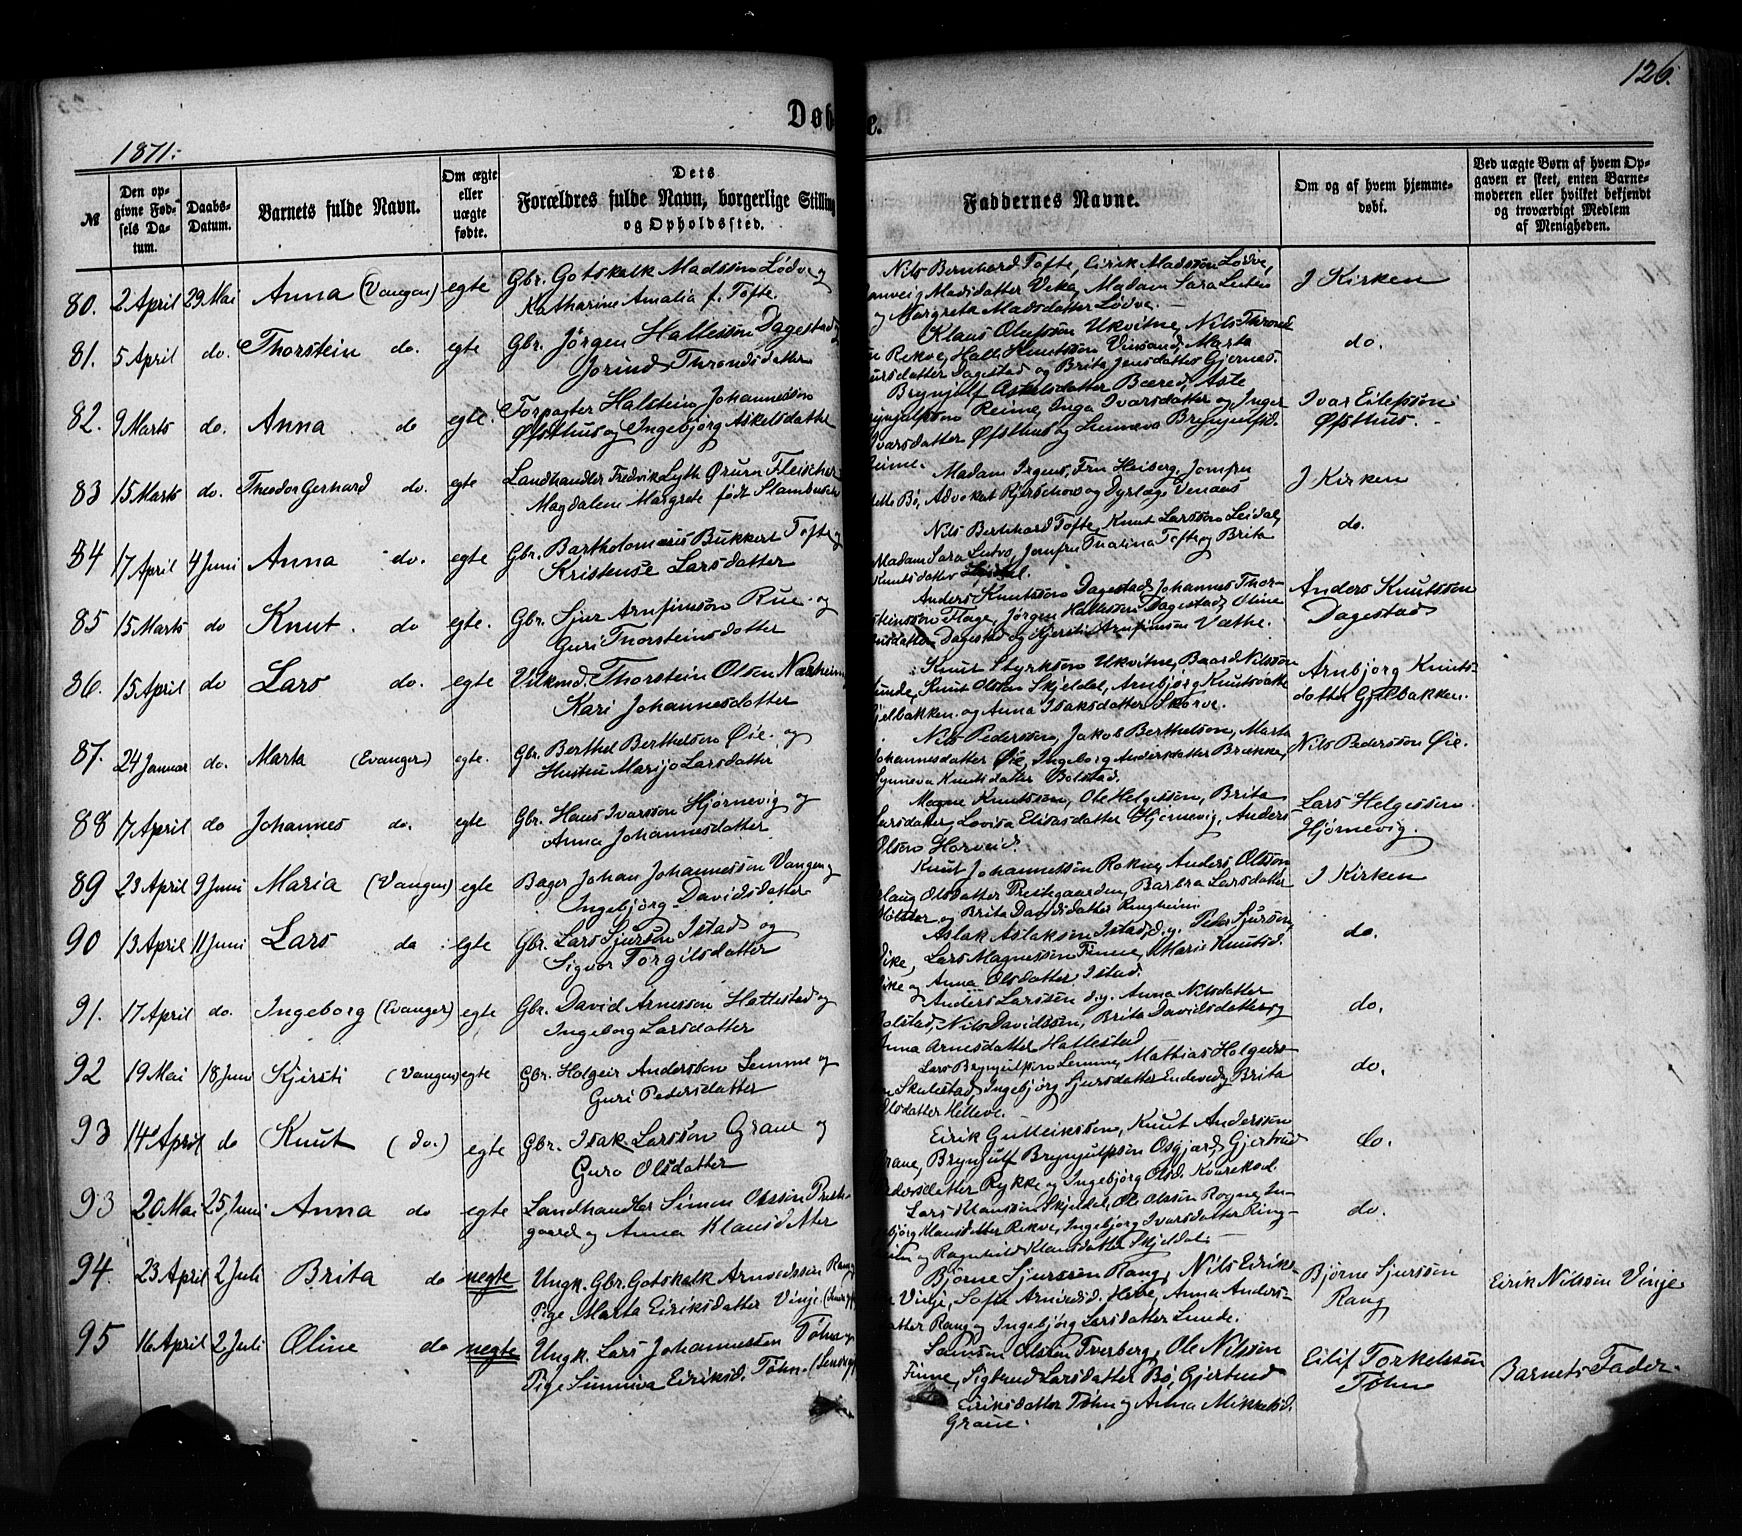 126.
Døb e.
1871.
№
Den op-
givne Fød-
sels Da-
tum.
Daabs-
Datum.
Barnets fulde Navn.
Om ægte
eller
uægte
fødte.
Dets
Forældres fulde Navn, borgerlige Stilling
og Opholdssted.
Faddernes Navne.
Om og af hvem hjemme-
døbt.
Ved uægte Børn af hvem Op-
gaven er skeet, enten Barne-
moderen eller hvilket bekjendt
og troværdigt Medlem
af Menigheden.
80. 2 April 29 Mai Anna (Vangen) egte Gbr. Gotskalk Madssøn Lødve og
Katharine Amalia f. Tofte.
Nils Bernhard Tofte, Eirik Madssøn Lødve,
Madsdatter Veka, Madam Sara
og Margrete Madsdatter Lødve.
I Kirken
81. 5 April do. Thorstein do. egte Gbr. Jörgen Hallessøn Dagestad
Jorind Throndsdatter
Klaus Olufssøn Ukvitne, Nils Thronds
Rekve, Halle Knutssøn Vinsand, Marta
datter Dagestad og Brita Jensdatter Gjernes.
do.
82. 9 Marts do. Anna do egte. Forpagter Halstein Johannessøn
Øfsthus og Ingebjørg Askelsdatter
Brynjulf Askelsdatter Bæred, Aste
Brynjulfssøn Reime, Inga Ivarsdatter og Inger
Ivarsdatter Øfsthus og Sunneva Brynjulfsd.
Reime.
Ivar Eilefssøn
Øfsthus.
83 15 Marts do. Theodor Gerhard do. egte Landhandler Fredrik Lyth Ørum Fleischer
Magdalene Margrete født Stambusen
Madam Irgens, Fru Heiberg, Jomfru
Bø, Advokat Kjerschow og Dyrlæge Venaas
I Kirken
84 17 April 4 Juni Anna do. egte Gbr. Bartholomæus Bukkert Tofte og
Kristense Larsdatter
Nils Bernhard Tofte, Knut Larssøn Leidal,
Madam Sara Jomfru Thalina Tofte og Brita
Knutsdatter Leidal.
do.
85 15 Marts do Knut. do egte. Gbr. Sjur Arnfinnsøn Rue og
Guri Thorsteinsdatter
Anders Knutssøn Dagestad, Johannes Thor-
steinssøn Flage, Jörgen Hallessøn Dagestad, Oline
datter Dagestad og Kjersti Arnfinnsøn Væthe.
Anders Knutssøn
Dagestad
86. 15 April do Lars do. egte Vilkmd. Thorstein Olsen Nærheim
Kari Johannesdatter
Knut Styrkson Ukvitne, Baard Nilssøn
Lunde, Knut Olssøn Skjeldal, Arnbjørg Knutsdatter
Gjelbakken og Anna Isaksdatter Skorve.
Arnbjørg Knuts-
datter Gjelbakken.
87. 24 Januar do. Marta (Evanger) egte. Gbr. Berthel Berthelsøn Øie og
Hustru Marjo Larsdatter
Nils Pederssøn, Jakob Berthelsøn, Marta
Johannesdatter Øie, Ingeborg Andersdatter Brække,
Synneva Knutsdatter Bolstad.
Nils Pederssøn Øie.
88 17 April do Johannes do. egte Gbr. Hans Ivarssøn Hjørnevig og
Anna Johannesdatter
Magne Knutssøn, Ole Helgessøn, Brita
Larsdatter, Lovisa Eliasdatter Hjørnevig, Anders
Olsen Horveid.
Lars Helgessøn
Hjørnevig.
89 23 April 9 Juni Maria (Vangen) egte Bager Johan Johannessøn Vangen og
Ingebjørg Davidsdatter
Knut Johannessøn Rokne, Anders Olssøn
Olsdatter Prestegaarden, Barbra Larsdatter
og Brita Davidsdatter Ringheim.
I Kirken
90 13 April 11 Juni Lars do egte Gbr. Lars Sjurson Istad og
Sigvor Torgilsdatter
Aslak Aslaksøn Istad, d.y. Peder Sjursøn,
Lars Magnessøn Finne, Marie Knutsd.
og Anna Olsdatter Istad.
do.
91. 17 April do. Ingeborg (Evanger) egte Gbr. David Arnessøn Hattestad og
Ingeborg Larsdatter
Anders Larssøn d.y. Anna Nilsdatter
Bolstad, Nils Davidssøn, Brita Davidsdatter og
Anna Arnesdatter Hattestad
do.
92 19 Mai 18 Juni Kjersti (Vangen) egte Gbr. Holgeir Anderssøn Lemme og
Guri Pedersdatter
Lars Brynjulfssøn Lemme, Mathias Holgeirs-
Skulestad, Ingebjørg Sjursdatter Endeved, Brita
Olsdatter Helleve.
do.
93 14 April do Knut (do.) egte Gbr. Isak Larssøn Graue og
Guro Olsdatter
Eirik Gulleikssøn, Knut Anderssøn
Graue, Brynjulf Brynjulfssøn Osgjerd, Gjertrud
Andersdatter Rykke og Ingebjørg Olsd. Kvarekval.
do.
93 20 Mai 25 Juni Anna do egte Landhandler Simon Olssøn Prest-
gaard og Anna Klausdatter
Lars Monssøn Skjeldal, Ole Olssøn Rogne, In-
gebjørg Klausdatter Rekve, Ingebjørg Ivarsdatter Ring-
heim og Ragnhild Klausdatter Skjeldal.
do.
94. 23 April 2 Juli Brita do uegte Ungk. Gbr. Gotskalk Arnvedssøn Rang
Pige Marta Eiriksdatter Vinje
Bjørne Sjurssøn Rang, Nils Eiriks-
Vinje, Sofie Arnvedsd. Hæve, Anna Anders-
datter Rang og Ingebjørg Larsdatter Lunde.
Bjørne Sjurssøn
Rang
Eirik Nilssøn Vinje
95 16 April 2 Juli Oline do uegte Ungk. Lars Johannessen Tøhn og
Pige Sunniva Eiriksd. Tøhn.
Samson Olssøn Tverberg, Ole Nilssøn
Finne, Sigtrud Larsdatter Bø, Gjertrud
Eiriksdatter Tøhn og Anna Mikkelsd.
Graue.
Eilif Torkelssøn
Tøhn
Barnets Fader.